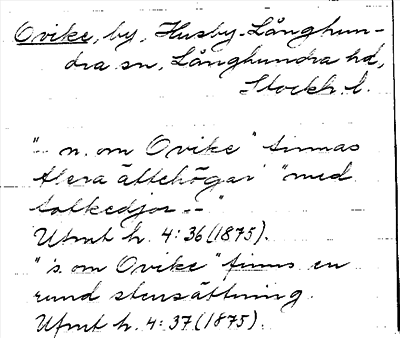 Ovike, by, Husby-Långhun-
dra sn, Långhundra hd,
Stockh. l.
"- n. om Ovike" finnas
flera ättehögar "med
fotkedjor --"
Ufmt h. 4: 36 (1875).
"s. om Ovike" finns en
rund stensättning.
Ufmt h. 4: 37 (1875).